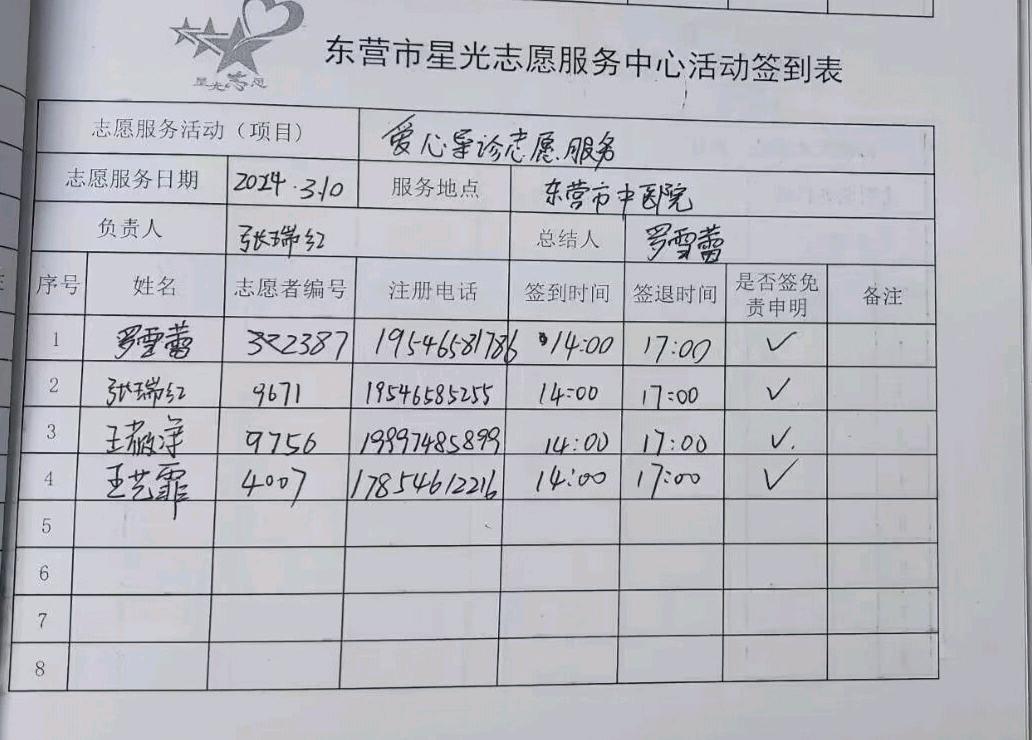 星光志愿
东营市星光志愿服务中心活动签到表
志愿服务活动（项目） 爱心导诊志愿服务
志愿服务日期 2024.3.10 服务地点 东营市中医院
负责人 张瑞红 总结人 罗雪蕾
序号 姓名 志愿者编号 注册电话 签到时间 签退时间 是否签免责申明 备注
1 罗雪蕾 322387 19546581786 14:00 17:00 ✓
2 张瑞红 9671 19546585255 14:00 17:00 ✓
3 王敬 9756 19997485899 14:00 17:00 ✓
4 王艺霏 4007 17854612216 14:00 17:00 ✓
5
6
7
8